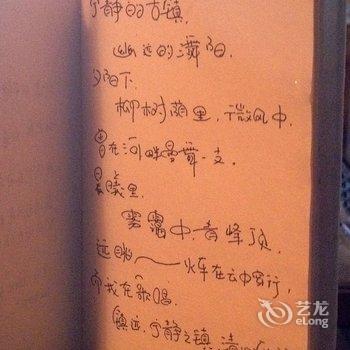 宁静的古镇,
幽远的潕阳.
夕阳下.
柳树荫里, 微风中,
曾在河畔曼舞一支.
晨曦里.
雾霭中, 青峰顶.
远眺——火车在云中穿行,
你我在歌唱.
镇远, 宁静之镇, 清
艺龙
eLong.com